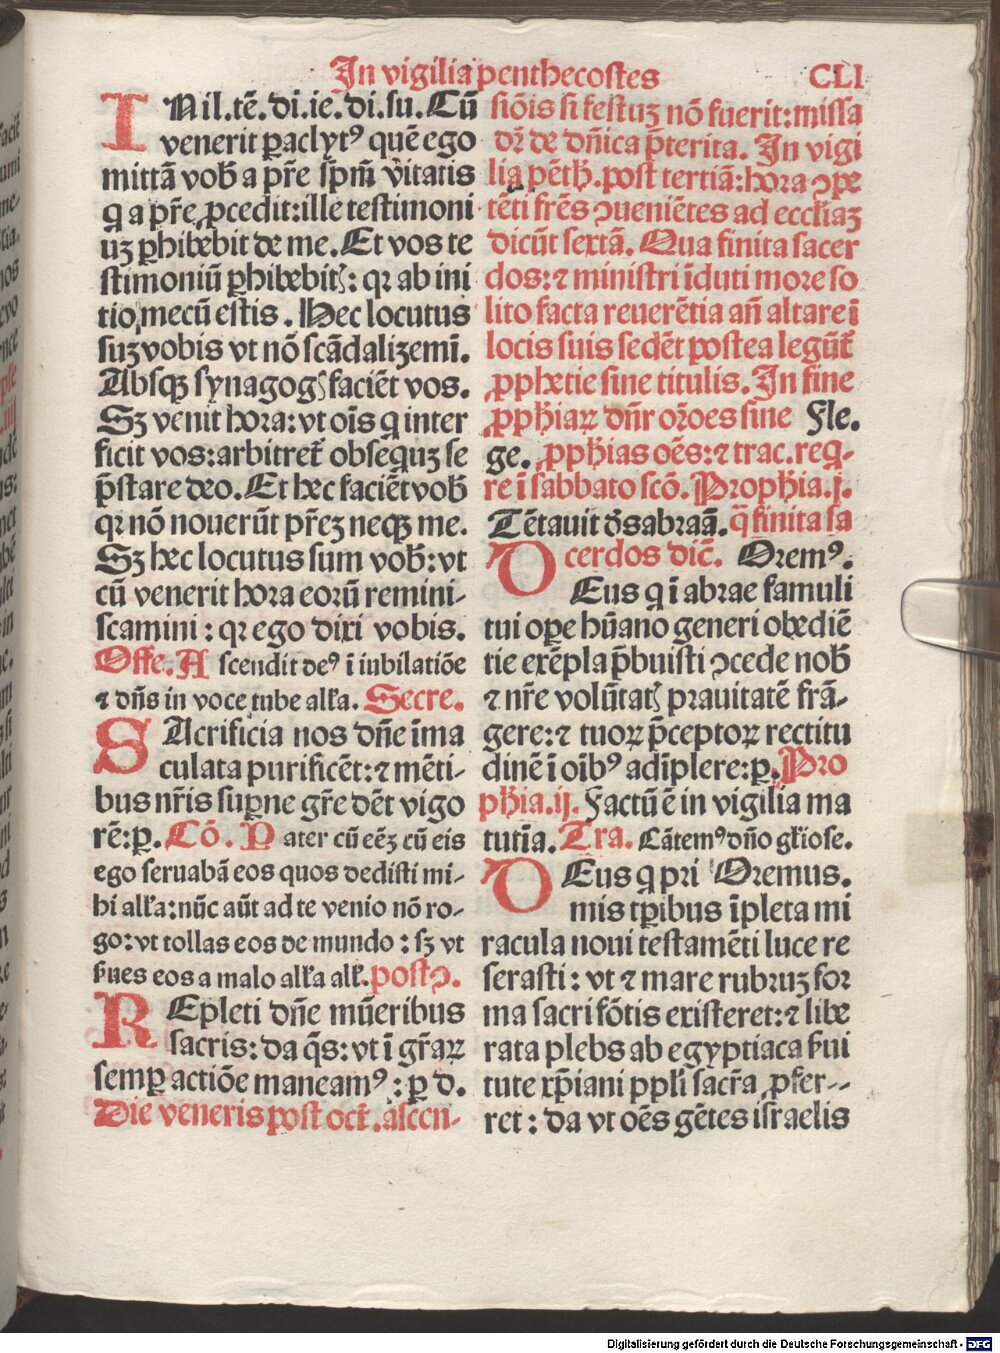 In vigilia penthecostes CLI
IN il. tẽ. di. ie. di. su. Cũ
venerit ꝑaclytꝰ quẽ ego
mittã vob̃ a pr̃e sp̃m v̾itatis
q a pr̃e ꝓcedit: ille testimoni
uꝫ ꝑhibebit de me. Et vos te
stimoniũ ꝑhibebitꝭ: qꝛ ab ini
tio mecũ estis. Hec locutus
suꝫ vobis vt nõ scãdalizemi.
Absqꝫ synagogꝭ faciẽt vos.
Sꝫ venit hora: vt oĩs q inter
ficit vos: arbitret᷑ obsequꝫ se
p̃stare deo. Et hec faciẽt vob̃
qꝛ nõ nouerũt pr̃eꝫ neqꝫ me.
Sꝫ hec locutus sum vob̃: vt
cũ venerit hora eorũ remini-
scamini: qꝛ ego dixi vobis.
Offe. A scendit deꝰ ĩ iubilatiõe
⁊ dñs in voce tube allʼa. Secre.
SAcrificia nos dñe ĩma
culata purificẽt: ⁊ mẽti-
bus nr̃is supꝑne gr̃e dẽt vigo
rẽ: ꝑ. Cõ. P ater cũ eẽꝫ cũ eis
ego seruabã eos quos dedisti mi-
hi allʼa: nũc aũt ad te venio nõ ro-
go: vt tollas eos de mundo: sꝫ vt
s̃ues eos a malo allʼa allʼ. postꝯ.
REpleti dñe mũeribus
sacris: da q̃s: vt ĩ gr̃aꝝ
semꝑ actiõe maneamꝰ: ꝑ d.
Die veneris post oct. ascen-
siõis si festuꝫ nõ fuerit: missa
dr̃ de dñica p̃terita. In vigi
lia pẽth̃. post tertiã: hora ꝯpe
tẽti fr̃es ꝯueniẽtes ad eccliaꝫ
dicũt sextã. Qua finita sacer
dos: ⁊ ministri ĩduti more so
lito facta reuerẽtia añ altare ĩ
locis suis sedẽt postea legũt᷑
ꝓphetie sine titulis. In fine
ꝓph̃iaꝝ dñr or̃oes sine Fle.
ge. ꝓph̃ias oẽs: ⁊ trac. req-
re ĩ sabbato scõ. Proph̃ia. j.
Tẽtauit d̃s abraã. q̃ finita sa
cerdos dic̃. Oremꝰ.
DEus q ĩ abrae famuli
tui oꝑe hũano generi obediẽ
tie exẽpla p̃buisti ꝯcede nob̃
⁊ nr̃e volũtatꝭ prauitatẽ frã-
gere: ⁊ tuoꝝ p̃ceptoꝝ rectitu
dinẽ ĩ oĩbꝰ adĩplere: ꝑ. Pro
ph̃ia. ij. Factũ ẽ in vigilia ma
tutĩa. Tra. Cãtemꝰ dño glʼiose.
DEus q pri Oremus.
mis tp̃ibus ĩpleta mi
racula noui testamẽti luce re
serasti: vt ⁊ mare rubruꝫ for
ma sacri fõtis existeret: ⁊ libe
rata plebs ab egyptiaca s̃ui
tute xp̃iani pplʼi sacr̃a ꝓfer--
ret: da vt oẽs gẽtes isr̃aelis
Digitalisierung gefördert durch die Deutsche Forschungsgemeinschaft - DFG